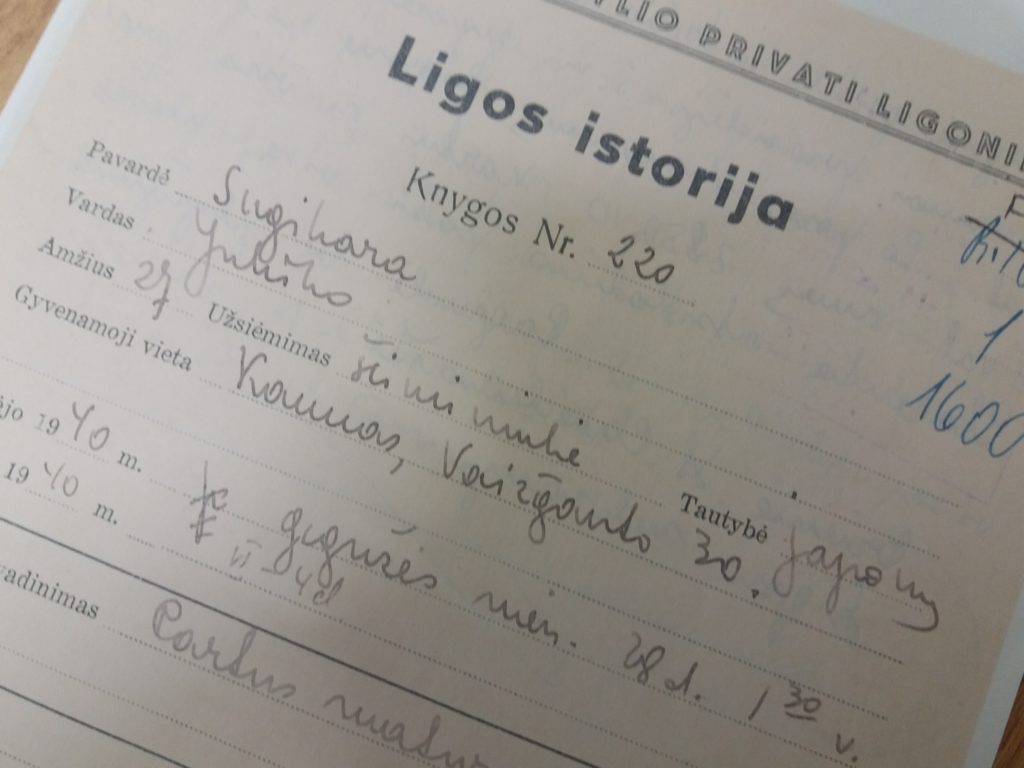 TLIO PRIVATI LIGONI
Ligos istorija
Knygos Nr. 220
Pavardė Sugihara
Vardas Yukiko
Amžius 27 Užsiėmimas šeimininkė Tautybė japonų
Gyvenamoji vieta Kaunas, Vaižganto 30.
1
1600
ėjo 1940 m. gegužės mėn. 28 d. 1 30 v.
1940 m. VI 4 d
vadinimas Partus matur